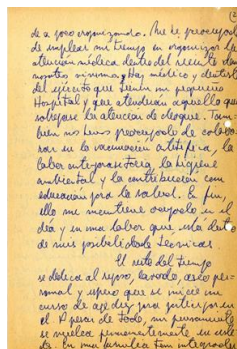 de a poco organizando. Me he preocupado
de emplear mi tiempo en organizar la
atención médica dentro del recinto den
nosotros mismos. Hay médico y dentista
del ejército que tienen un pequeño
Hospital y que atenderán aquello que
sobrepase la atención de choque. Tam
bien nos hemos preocupado de colabo
rar en la vacunación antitífica, la
labor integrada, la higiene
ambiental y la contribución con
educación para la salud. En fin,
ello me mantiene ocupado en el
día y en una labor que está dentro
de mis posibilidades técnicas.
El resto del tiempo
se dedica al reposo, lavado, aseo per=
sonal y espero que se inicie un
curso de ajedrez para interesar en
el A pesar de todo, mi pensamiento
se vuelca permanentemente en uste
des. En una familia tan